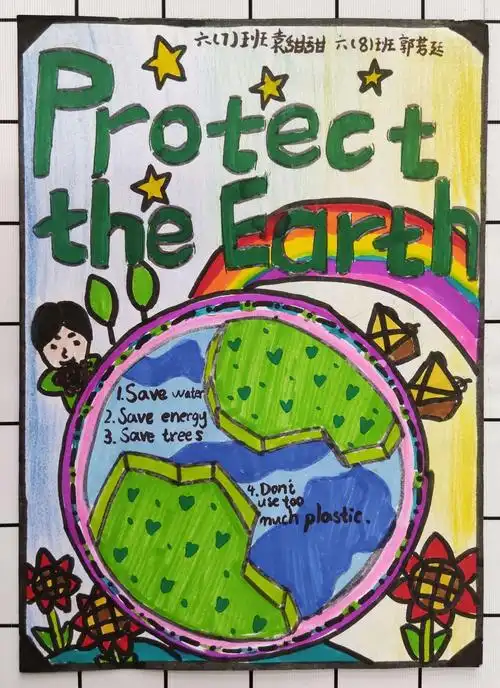 六(7)班袁甜甜 六(8)班郭茗廷
Protect
the Earth
1. Save water
2. Save energy
3. Save trees
4. Don't
use too
much plastic.